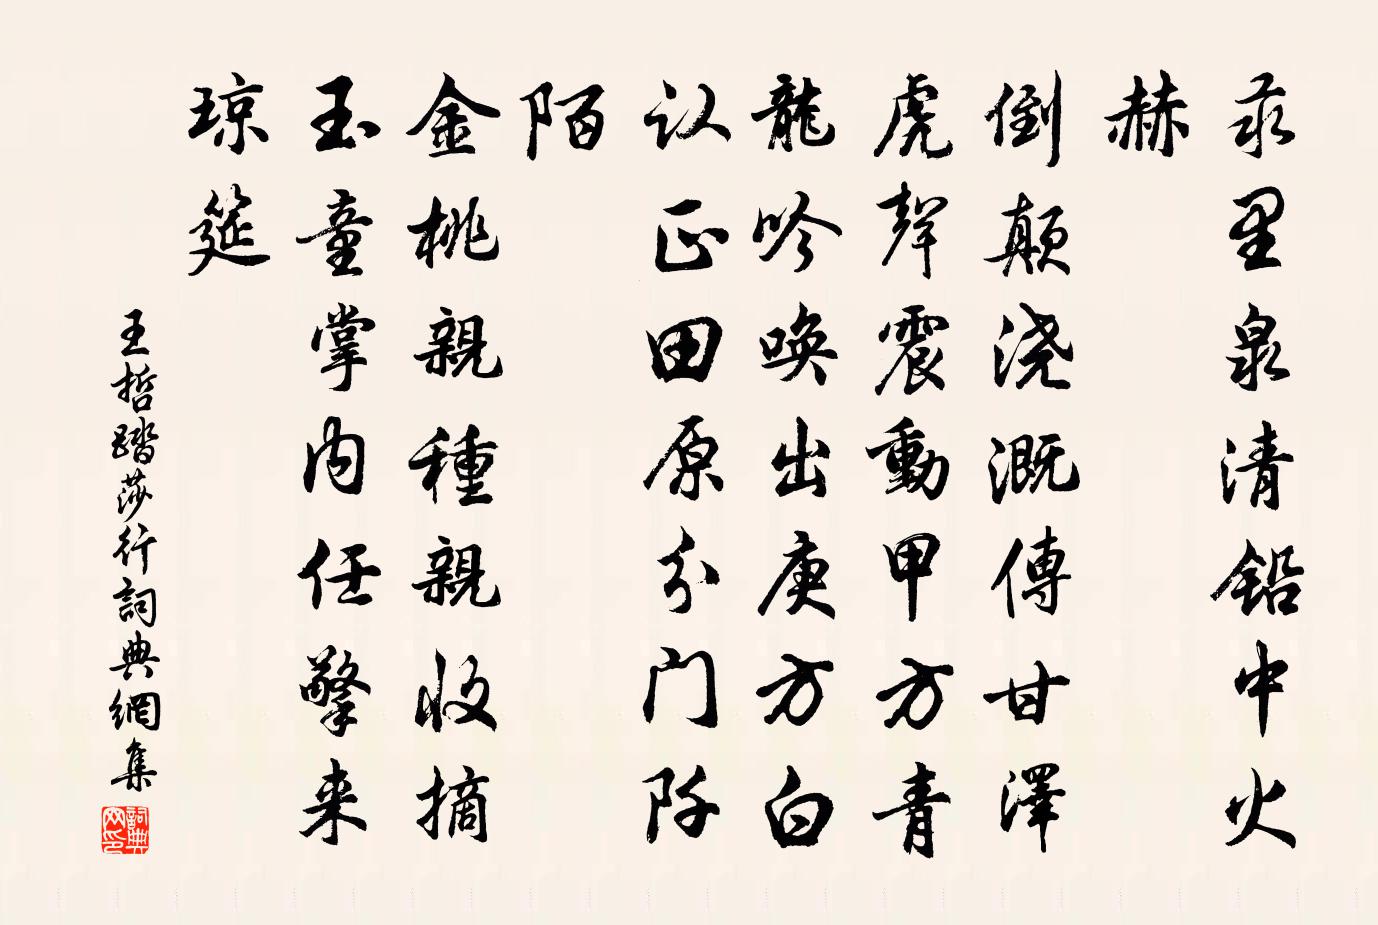 汞里泉清铅中火
赫
倒颠浇溉傳甘澤
虎聲震動甲方青
龍吟唤出庚方白
认正田原分门阡
陌
金桃親種親收摘
玉童掌内任擎来
琼筵
王哲踏莎行詞典網集
詞典网印